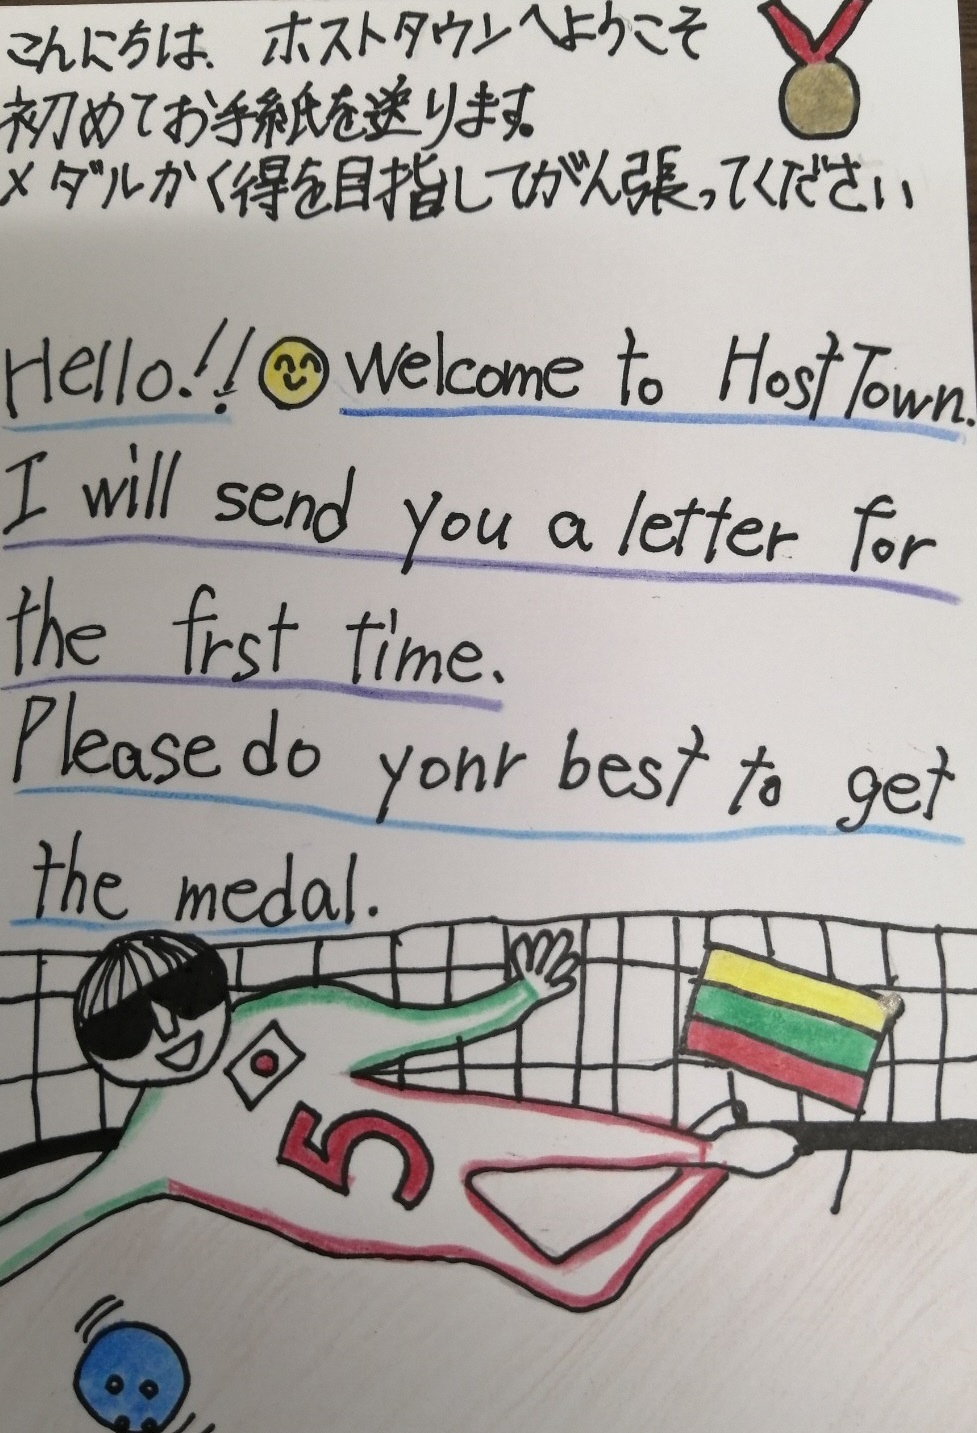 こんにちは、ホストタウンへようこそ
初めてお手紙を送ります。
メダルかく得を目指してがん張ってください
Hello!! Welcome to Host Town.
I will send you a letter for
the frst time.
Please do yonr best to get
the medal.
5